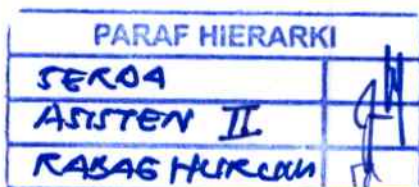 PARAF HIERARKI
SEKDA
ASISTEN II
KABAG HUKUM